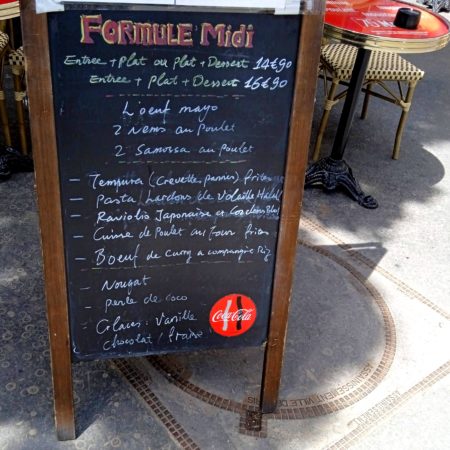 Formule Midi
Entree + Plat ou Plat + Dessert 14€90
Entree + Plat + Dessert 16€90
L'oeuf mayo
2 Nems au Poulet
2 Samossa au Poulet
- Tempura (Crevette, pannes) frites
- Pasta Lardons de Volaille Halall
- Raviolis Japonaise et
- Cuisse de Poulet au Four frites
- Boeuf de Curry accompagne Riz
- Nougat
- perle de coco
- Glaces: Vanille
Chocolat / fraise
Coca-Cola
ASSAINISSEMENT VILLE DE